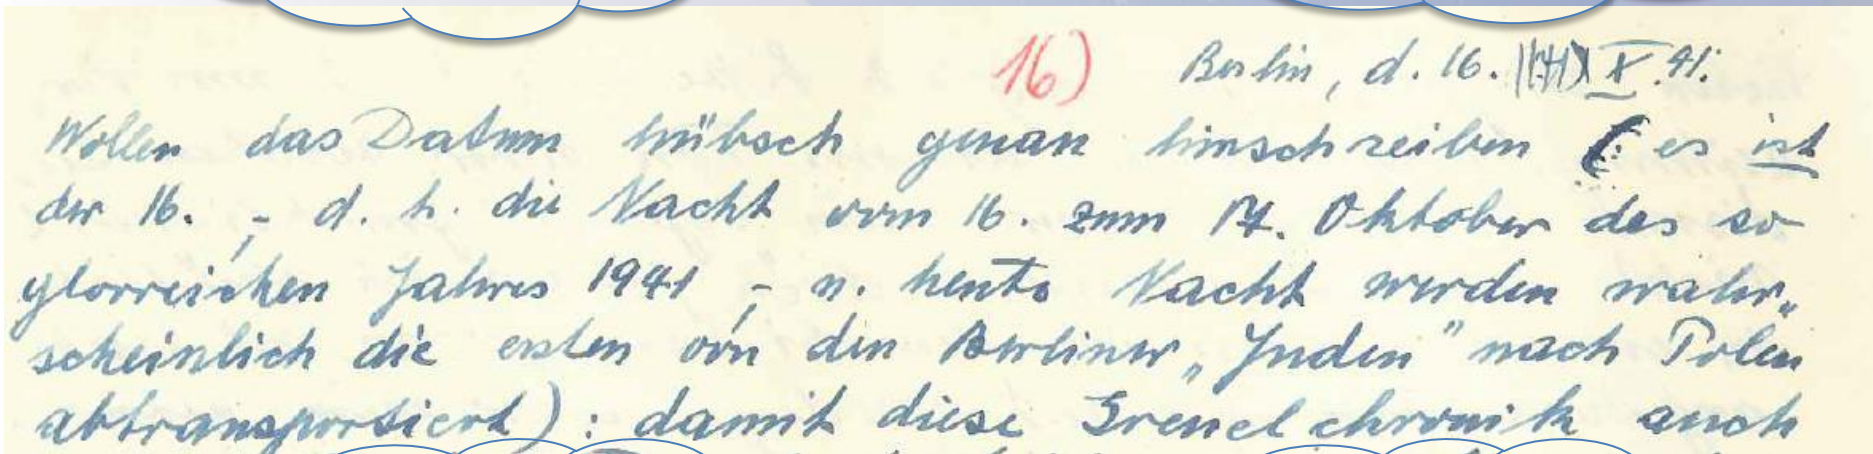 16) Berlin, d. 16. X. 41.
Wollen das Datum hübsch genau hinschreiben (: es ist
der 16. , - d. h. die Nacht vom 16. zum 17. Oktober des so
glorreichen Jahres 1941 , - u. heute Nacht werden wahr„
scheinlich die ersten von den Berliner „Juden" nach Polen
abtransportiert) : damit diese Greuelchronik auch